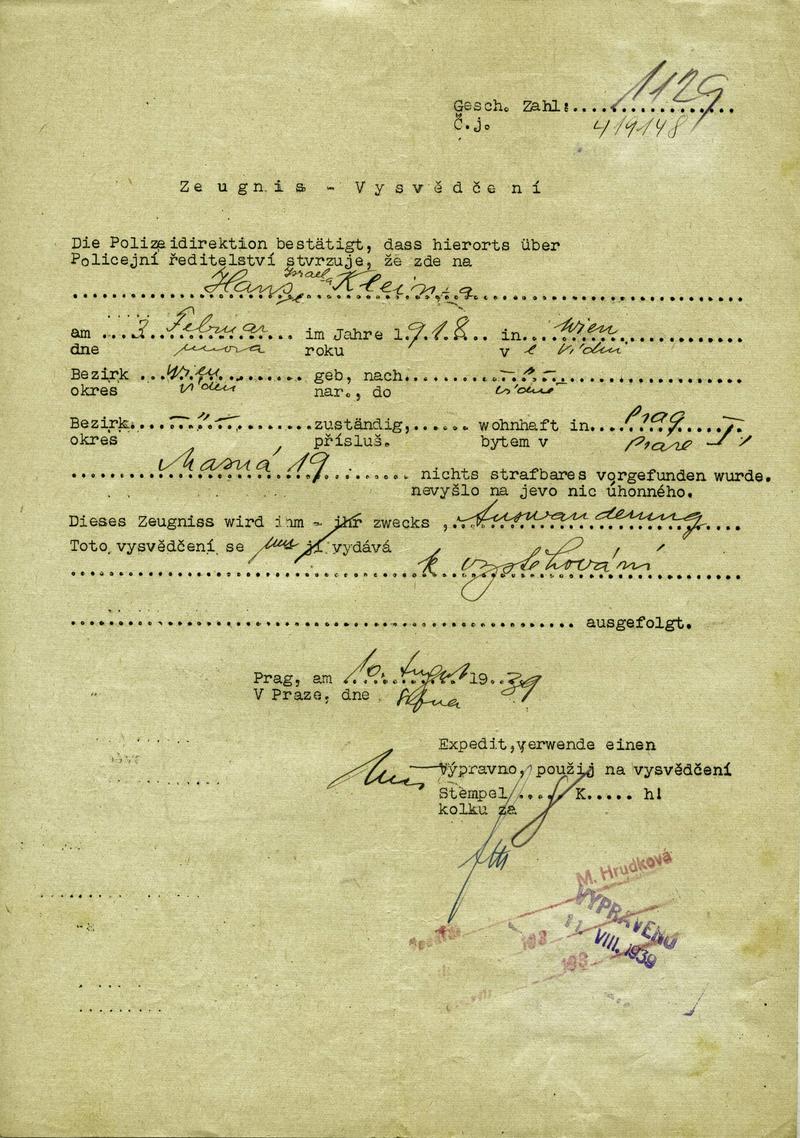 Gesch. Zahl:.....1129
Č.j. 419148
Zeugnis - Vysvědčení
Die Polizeidirektion bestätigt, dass hierorts über
Policejní ředitelství stvrzuje, že zde na
Hans Israel Klein
am ...3. Februar... im Jahre 1918.. in...Wien
dne února roku v e Vídni
Bezirk ...Wien... geb, nach... -"-
okres Vídeň nar., do
Bezirk... -"- ...zuständig,...... wohnhaft in...Prag I
okres přísluš. bytem v Praze I
Masná 19 ... nichts strafbares vorgefunden wurde.
nevyšlo na jevo nic úhonného.
Dieses Zeugniss wird ihm - ihr zwecks ,..Auswanderung...
Toto vysvědčení se mu jí vydává
k vystěhování
... ausgefolgt.
Prag, am 10. August 19..39
V Praze, dne srpna
Expedit,verwende einen
Výpravno, použij na vysvědčení
Stempel..... K..... hl
kolku za
M. Hrudková
VYPRAVENO
11. VIII. 1939
193
193